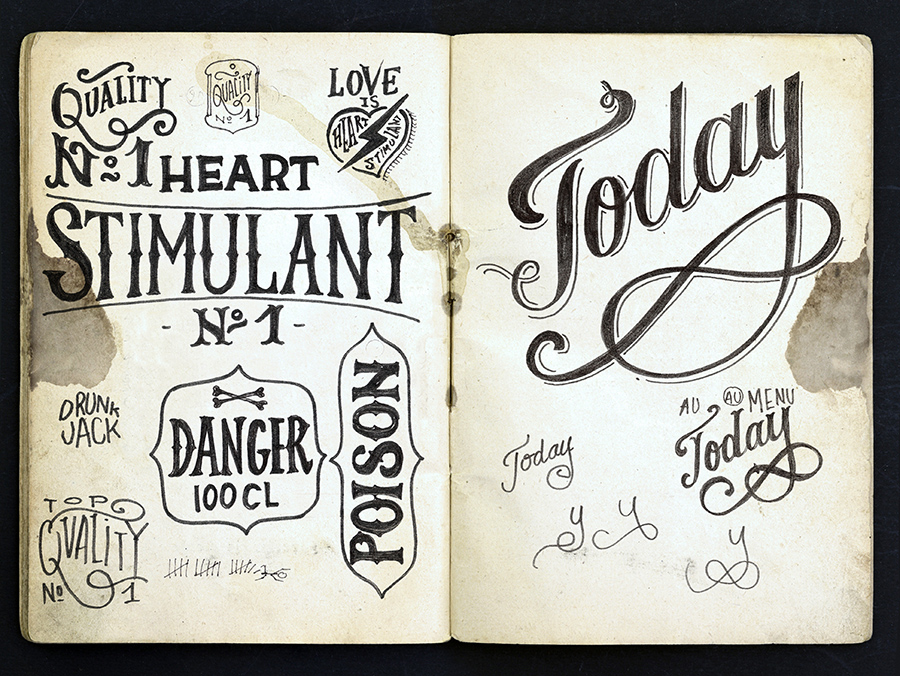 QUALITY
No 1
QUALITY
No 1
LOVE
IS
HEART
STIMULANT
HEART
STIMULANT
- No 1 -
DRUNK
JACK
DANGER
100 CL
POISON
TOP
QUALITY
No 1
Today
AU AU MENU
Today
Today
y y
y